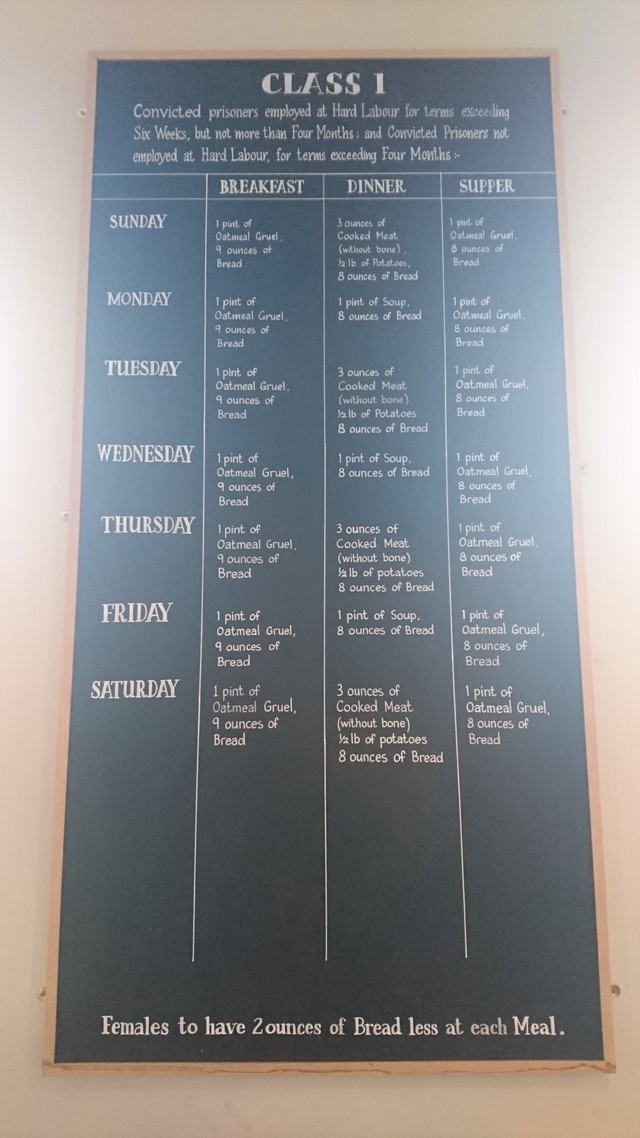 CLASS 1
Convicted prisoners employed at Hard Labour for terms exceeding
Six Weeks, but not more than Four Months; and Convicted Prisoners not
employed at Hard Labour, for terms exceeding Four Months :-
BREAKFAST
DINNER
SUPPER
SUNDAY
1 pint of
Oatmeal Gruel,
9 ounces of
Bread
3 ounces of
Cooked Meat
(without bone),
½ lb of Potatoes,
8 ounces of Bread
1 pint of
Oatmeal Gruel,
8 ounces of
Bread
MONDAY
1 pint of
Oatmeal Gruel,
9 ounces of
Bread
1 pint of Soup,
8 ounces of Bread
1 pint of
Oatmeal Gruel,
8 ounces of
Bread
TUESDAY
1 pint of
Oatmeal Gruel,
9 ounces of
Bread
3 ounces of
Cooked Meat
(without bone)
½ lb of Potatoes
8 ounces of Bread
1 pint of
Oatmeal Gruel,
8 ounces of
Bread
WEDNESDAY
1 pint of
Oatmeal Gruel,
9 ounces of
Bread
1 pint of Soup,
8 ounces of Bread
1 pint of
Oatmeal Gruel,
8 ounces of
Bread
THURSDAY
1 pint of
Oatmeal Gruel,
9 ounces of
Bread
3 ounces of
Cooked Meat
(without bone)
½ lb of potatoes
8 ounces of Bread
1 pint of
Oatmeal Gruel,
8 ounces of
Bread
FRIDAY
1 pint of
Oatmeal Gruel,
9 ounces of
Bread
1 pint of Soup,
8 ounces of Bread
1 pint of
Oatmeal Gruel,
8 ounces of
Bread
SATURDAY
1 pint of
Oatmeal Gruel,
9 ounces of
Bread
3 ounces of
Cooked Meat
(without bone)
½ lb of potatoes
8 ounces of Bread
1 pint of
Oatmeal Gruel,
8 ounces of
Bread
Females to have 2 ounces of Bread less at each Meal.